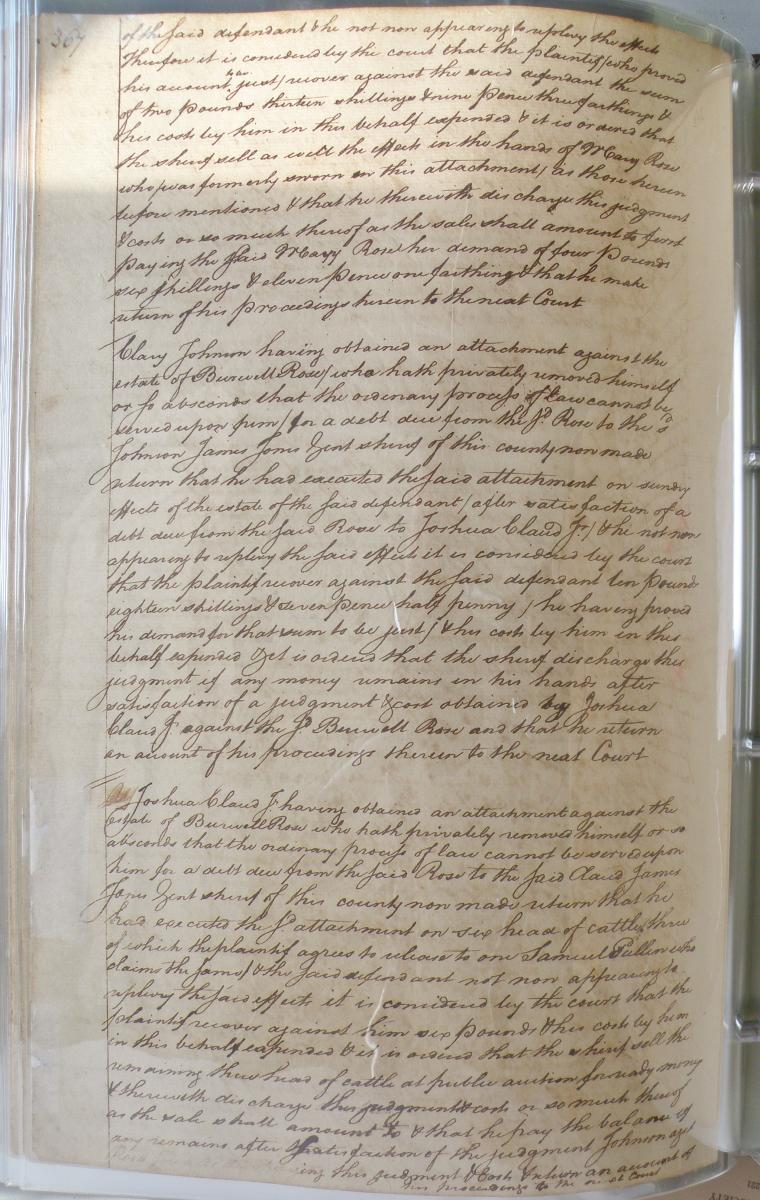 367
of the said defendant & he not now appearing to replevy the effects
Therefore it is considered by the court that the plaintif (who proved
his account to be just) recover against the said defendant the sum
of two pounds thirteen shillings & nine pence three farthings &
his costs by him in this behalf expended & it is ordered that
the sherif sell as well the effects in the hands of Mary Rose
who was formerly sworn on this attachment) as those herein
before mentioned & that he therewith discharge this judgment
& costs or so much thereof as the sales shall amount to first
paying the said Mary Rose her demand of four pounds
six shillings & eleven pence one farthing & that he make
return of his proceedings herein to the next Court
Clary Johnson having obtained an attachment against the
estate of Burwell Rose (who hath privately removed himself
or so absconds that the ordinary process of law cannot be
served upon him) for a debt due from the sd. Rose to the sd
Johnson James Jones Gent sherif of this county now made
return that he had executed the said attachment on sundry
effects of the estate of the said defendant (after satisfaction of a
debt due from the said Rose to Joshua Claud Jr.) & he not now
appearing to replevy the said effects it is considered by the court
that the plaintif recover against the said defendant ten pounds
eighteen shillings & seven pence half penny (he having proved
his demand for that sum to be just) & his costs by him in this
behalf expended & it is ordered that the sherif discharge this
judgment if any money remains in his hands after
satisfaction of a judgment & cost obtained by Joshua
Claud Jr. against the sd Burwell Rose and that he return
an account of his proceedings therein to the next Court
Joshua Claud Jr. having obtained an attachment against the
estate of Burwell Rose who hath privately removed himself or so
absconds that the ordinary process of law cannot be served upon
him for a debt due from the said Rose to the said Claud, James
Jones Gent sherif of this county now made return that he
had executed the sd attachment on six head of cattle (three
of which the plaintif agrees to release to one Samuel Pullen who
claims the same) & the said defendant not now appearing to
replevy the said effects it is considered by the court that the
plaintif recover against him six pounds & his costs by him
in this behalf expended & it is ordered that the sherif sell the
remaining three head of cattle at public auction for ready money
& therewith discharge this judgment & costs or so much thereof
as the sale shall amount to & that he pay the balance if
any remains after satisfaction of the judgment Johnson agst
Rose this judgment & Costs & return an account of
his proceedings to the next Court